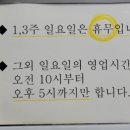 ◆ 1,3주 일요일은 휴무입니
◆ 그외 일요일의 영업시간
오전 10시부터
오후 5시까지만 합니다.